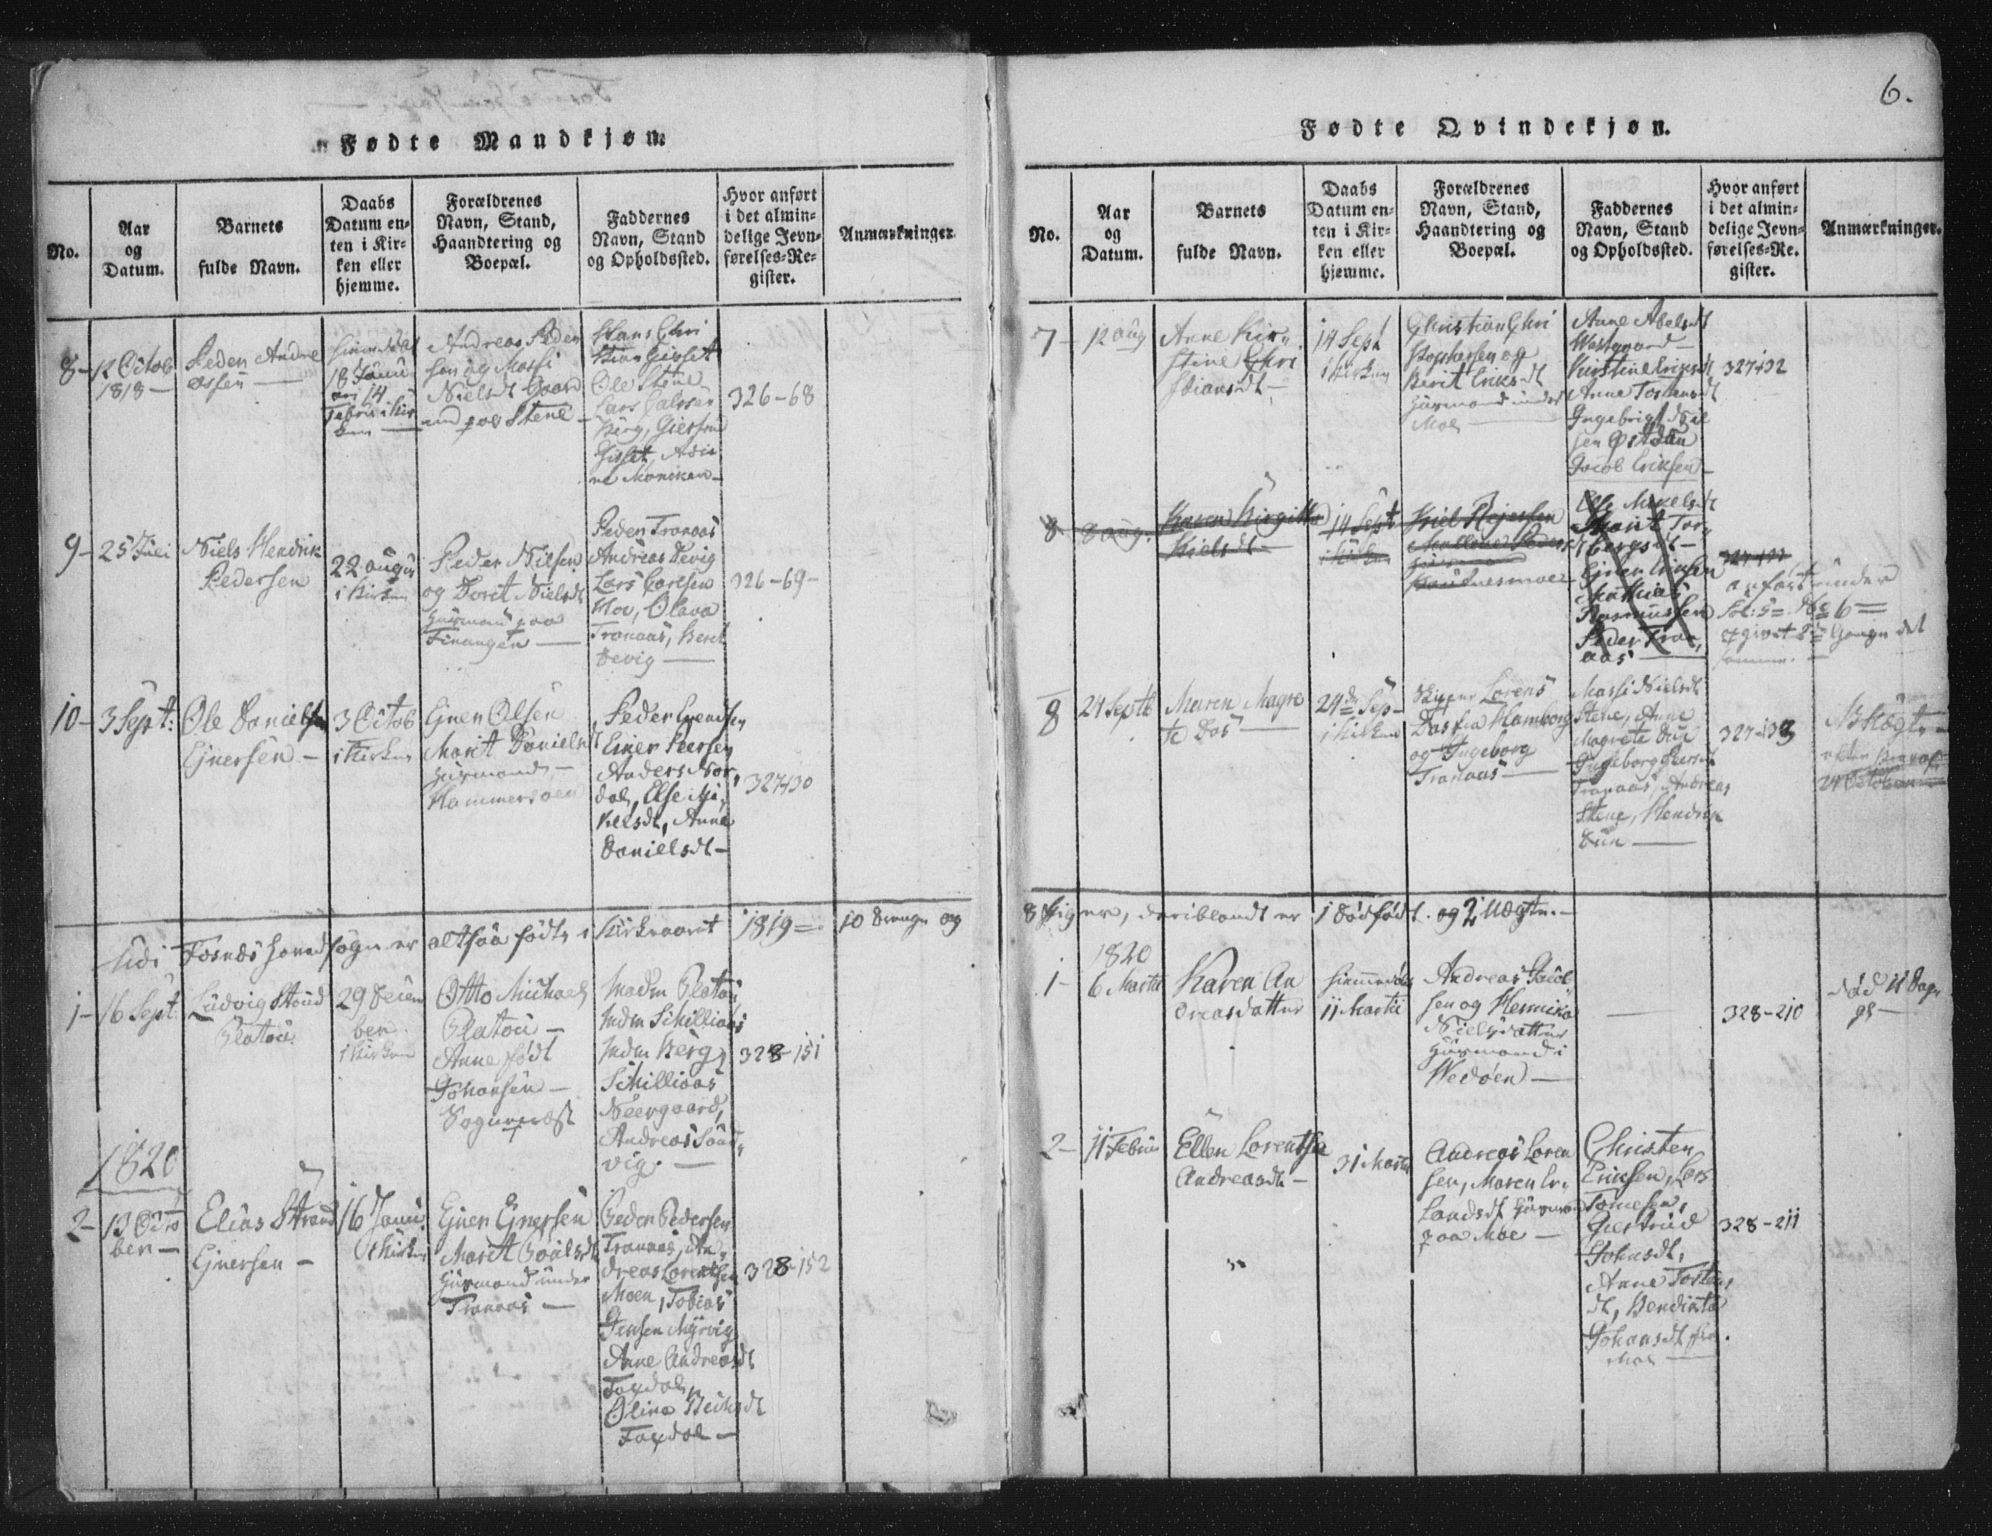 Fødte Mandkjøn.
No.
Aar
og
Datum.
Barnets
fulde Navn.
Daabs
Datum en-
ten i Kir-
ken eller
hjemme.
Forældrenes
Navn, Stand,
Haandtering og
Boepæl.
Faddernes
Navn, Stand
og Opholdssted.
Hvor anført
i det almin-
delige Jevn-
førelses-Re-
gister.
Anmærkninger.
8-
12 Octob
1818-
Peder Andre
assen
hiemedøbt
18 Janu
ari 14
Febru i Kir
ken
Andreas Peder
sen og Massi
Nielsdt Gaard
mand paa Stene
Hans Chri
stian Gisset
Ole Stene
Lars
Berg, Giertrud
Gisset
326-68
9-
25 Juli
Niels Hendrik
Pedersen
22 august
i Kirken
Peder Nielsen
og Dorit Nielsdt
Huusmand paa
Finangen
Peder Tranaas
Andreas Devig
Lars Carlsen
Hov, Olava
Tranaas, Berit
Devig
326-69-
10-
3 Sept:
Ole Danielsen
Ejnersen
3 Octob
i Kirken
Ejner Olsen
Marit Danielsdt
Huusmand
Hammersøen
Peder Svendsen
Einer Peersen
Anders Nor
dal, Else Mi
kelsdt, Anne
Danielsdt
327-30
Udi Fosnæs hovedsogn er altsaa født i Kirkeaaret 1819 = 10 Drenge og
1-
16 Sept
Ludvig Stoud
Platou
29 Decem
ber
i Kirken
Otto Michael
Platou
Anne født
Johansen
Sognepræst
Madm Platou
Mdm Schilliaas
Mdm Berg
Schilliaas
Neergaard,
Andreas Sand
vig.
328-151
1820
2-
13 Octo
ber
Elias Strand
Ejnersen
16 Janu
i Kirken
Ejner Ejnersen
Marit Poulsdt
Huusmand under
Tranaas
Peder Pedersen
Tranaas, An
dreas Lorentsen
Moen, Tobias
Jensen Myrvig
Anne Andreasdt
Faxdal
Oline
Faxdal
328-152
6.
Fødte Qvindekjøn.
No.
Aar
og
Datum.
Barnets
fulde Navn.
Daabs
Datum en-
ten i Kir-
ken eller
hjemme.
Forældrenes
Navn, Stand,
Haandtering og
Boepæl.
Faddernes
Navn, Stand
og Opholdssted.
Hvor anført
i det almin-
delige Jevn-
førelses-Re-
gister.
Anmærkninger.
7-
12 aug
Anne Kir
stine Chri
stiansdt
14 Sept
i Kirken
Christian Chri
stophersen og
Berit Eriksdt
Huusmand under
Moe
Anne Abelsdt
Westgaard
Kirstine Eriksdt
Anne Tostensdt
Ingebrigt Niel
sen
Jacob Eriksen
327-32
8
8 aug.
Karen Birgitte
Kielsdt
14 Sept
i Kirken
Kiel Rejersen
Huusmand
Else Mikelsdt
Marit Tor
bergsdt
Ejner Einersen
Mathias
Rasmussen
Peder Tran
aas
anført under
Fol: 5 No 6
opgivet 2de Gange det
samme.
8
24 Septb
Maren Magre
te Das
24de Sep
i Kirken
Skipper Lorens
Das fra Hamborg
og Ingeborg
Tranaas
Massi Nielsdt
Stene, Anne
Magrete Duе
Ingeborg
Tranaas, Andreas
Stene, Hendrik
Due
327-33
Uægte
24 October
8 Piger, deriblandt er 1 Dødfødt og 2 Uægte.
1820
1-
6 Martii
Karen An
dreasdatter
hiemmedøbt
11 Martii
Andreas Jacob
sen og Hennika
Nielsdatter
Huusmand i
Wedøen
328-210
død 11 Dage
gl
2-
11 Febru
Ellen Lorentse
Andreasdt
31 Marti
Andreas Loren
sen, Maren Er
landsdt Huusmand
paa Moe
Christen
Eriksen, Lars
Tomesen,
Giertrud
Johnsdt,
Anne Tostens
dt, Bendikta
Johansdt
Moe
328-211